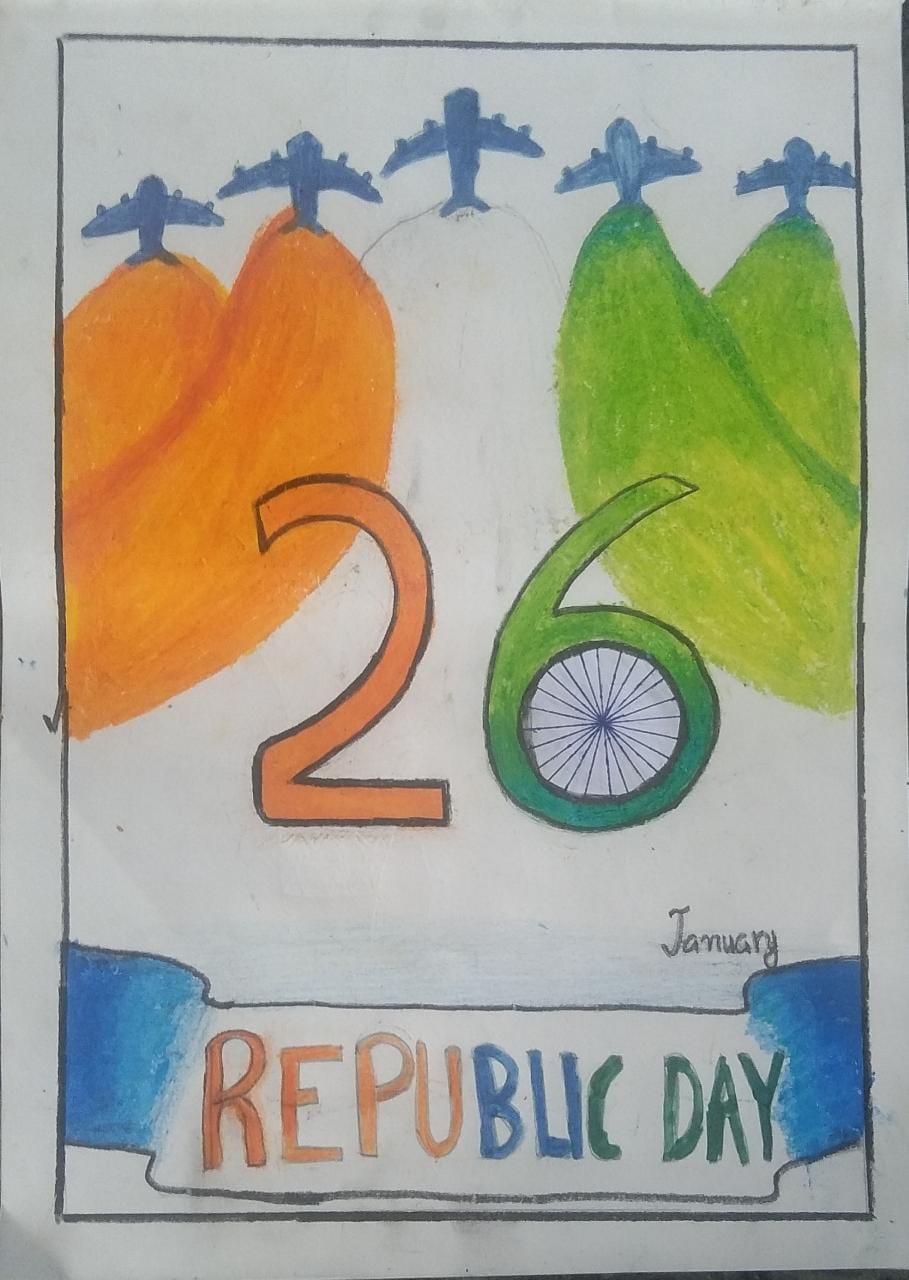 26
January
REPUBLIC DAY